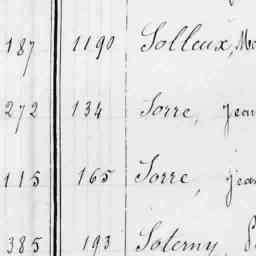 187 1190 Solleux, Ma
272 134 Sorre, Jean
115 165 Sorre, Jean
385 193 Soterny, P